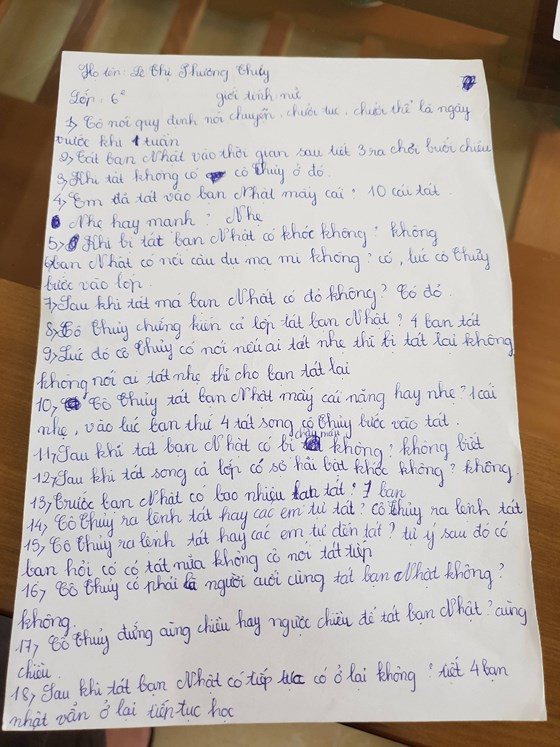 Họ tên: Lê Thị Phương Thúy
Lớp: 6² giới tính nữ
1, Cô nói quy định nói chuyện, chửi tục, chửi thề là ngày
trước khi 1 tuần
2, Tát bạn Nhật vào thời gian sau tiết 3 ra chơi buổi chiều
3, Khi tát không có cô Thủy ở đó.
4, Em đã tát vào bạn Nhật mấy cái? 10 cái tát
Nhẹ hay mạnh? Nhẹ
5, Khi bị tát bạn Nhật có khóc không? không
6, bạn Nhật có nói câu du mạ mi không? có, lúc cô Thủy
bước vào lớp.
7, Sau khi tát má bạn Nhật có đỏ không? Có đỏ.
8, Cô Thủy chứng kiến cả lớp tát bạn Nhật? 4 bạn tát
9, Lúc đó cô Thủy có nói nếu ai tát nhẹ thì bị tát lại không
không nói ai tát nhẹ thì cho bạn tát lại
10, Cô Thủy tát bạn Nhật mấy cái nặng hay nhẹ? 1 cái
nhẹ, vào lúc bạn thứ 4 tát song cô Thủy bước vào tát.
11, Sau khi tát bạn Nhật có bị chảy máu không? không biết
12, Sau khi tát song cả lớp có sợ hãi bật khóc không? không.
13, Trước bạn Nhật có bao nhiêu bạn tát? 7 bạn
14, Cô Thủy ra lệnh tát hay các em tự tát? cô Thủy ra lệnh tát
15, Cô Thủy ra lệnh tát hay các em tự đến tát? tự ý sau đó có
bạn hỏi cô có tát nữa không cô nói tát tiếp
16, Cô Thủy có phải là người cuối cùng tát bạn Nhật không?
không.
17, Cô Thủy đứng cùng chiều hay ngược chiều để tát bạn Nhật? cùng
chiều.
18, Sau khi tát bạn Nhật có tiếp tục có ở lại không? tiết 4 bạn
nhật vẫn ở lại tiến tục học